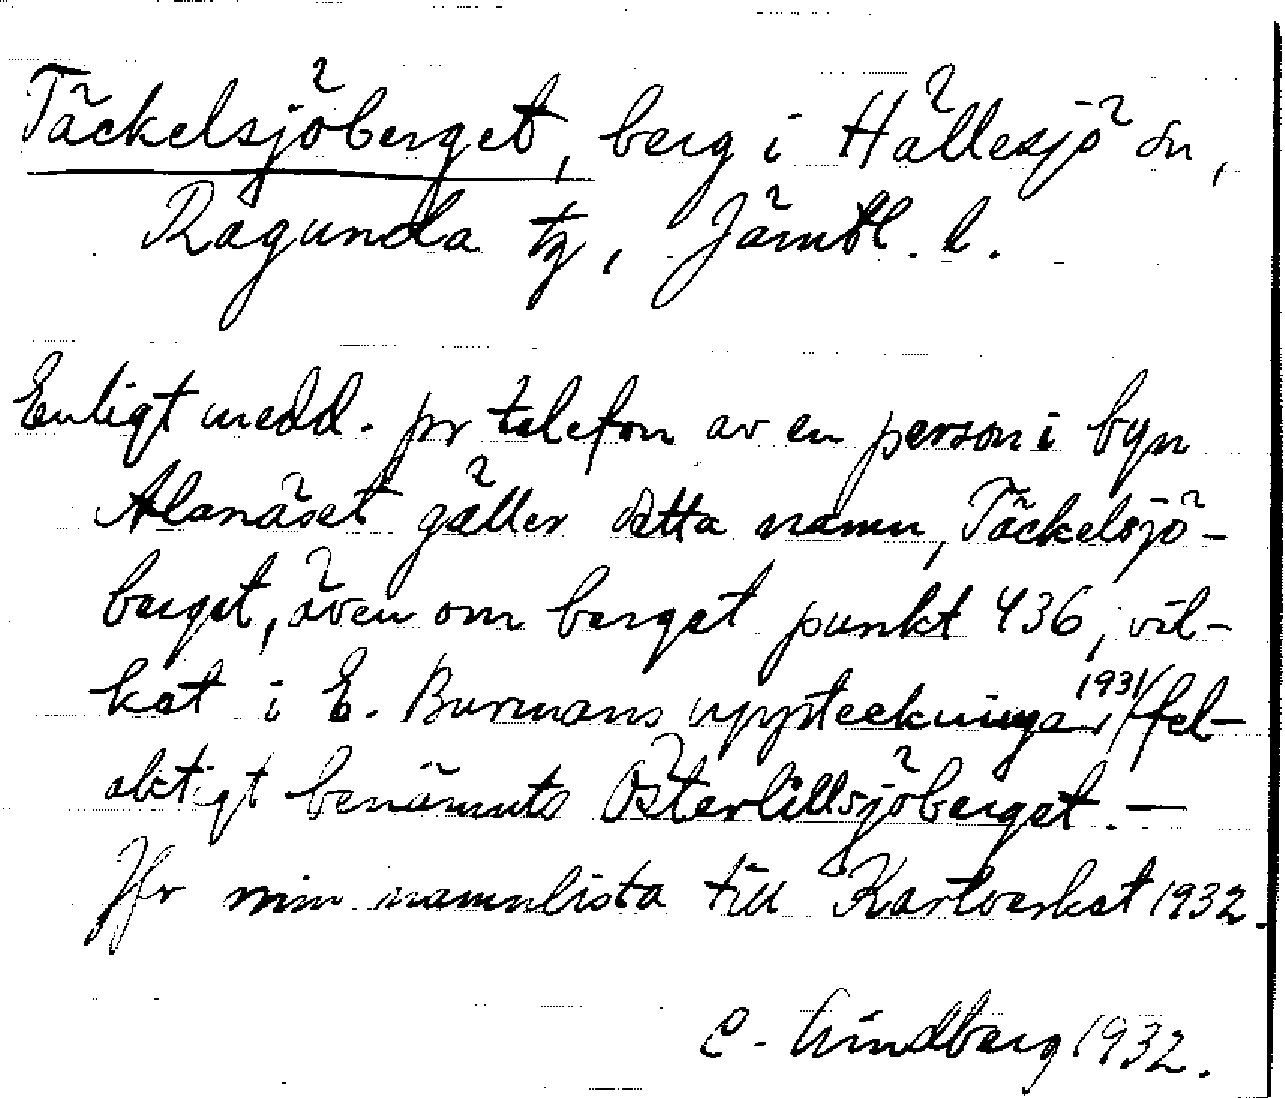 Täckelsjöberget, berg i Hällesjö sn,
Ragunda tg, Jämtl. l.
Enligt medd. pr telefon av en person i byn
Alanäset gäller detta namn, Täckelsjö-
berget, även om berget punkt 436, vil-
ket i E. Burmans uppteckningar 1931/ fel-
aktigt benämnts Österlillsjöberget. —
Jfr min namnlista till Kartverket 1932.
C. Lindberg 1932.